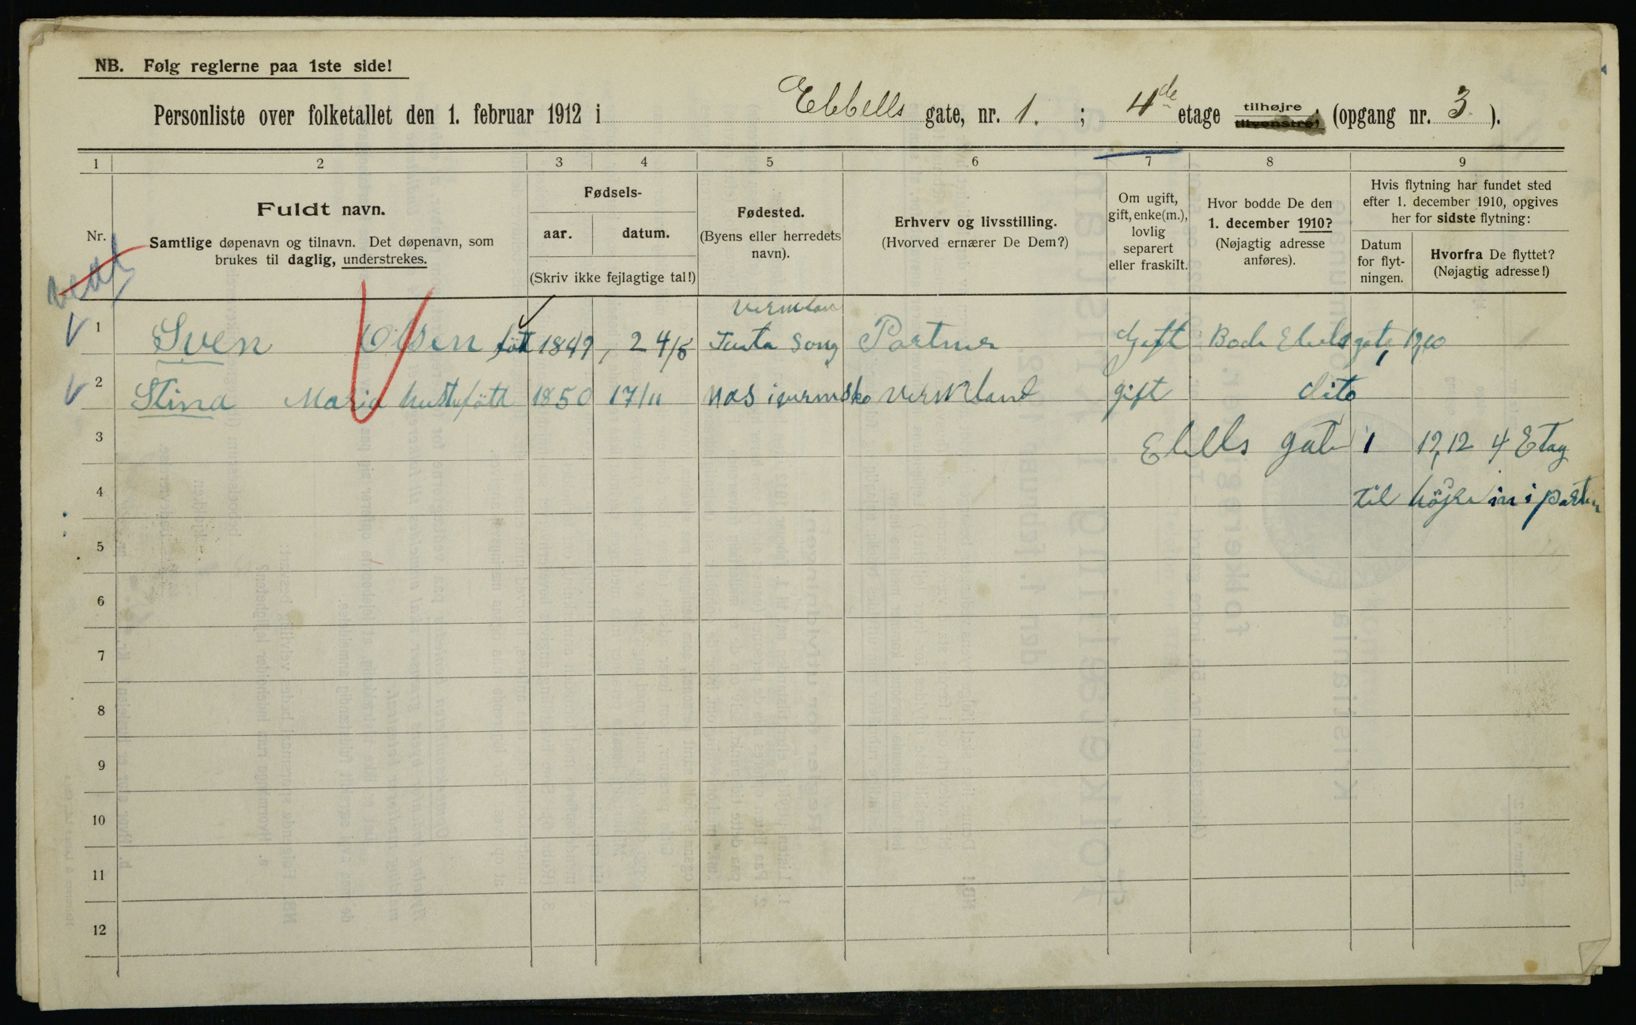 NB. Følg reglerne paa 1ste side!
Personliste over folketallet den 1. februar 1912 i Ebbells gate, nr. 1. ; 4de etage tilhøjre tilvenstre, (opgang nr. 3 ).
1 2 3 4 5 6 7 8 9
Nr.
Fuldt navn.
Samtlige døpenavn og tilnavn. Det døpenavn, som
brukes til daglig, understrekes.
Fødsels-
aar. datum.
(Skriv ikke fejlagtige tal!)
Fødested.
(Byens eller herredets
navn).
Erhverv og livsstilling.
(Hvorved ernærer De Dem?)
Om ugift,
gift, enke(m.),
lovlig
separert
eller fraskilt.
Hvor bodde De den
1. december 1910?
(Nøjagtig adresse
anføres).
Hvis flytning har fundet sted
efter 1. december 1910, opgives
her for sidste flytning:
Datum
for flyt-
ningen.
Hvorfra De flyttet?
(Nøjagtig adresse!)
1 Sven Olsen föt 1849, 24/5 Portner Gift Bode
2 Stina Maria hustu föth 1850 17/11 gift dito
3 gate 1 12,12 4 Etag
4 til höjre in i
5
6
7
8
9
10
11
12